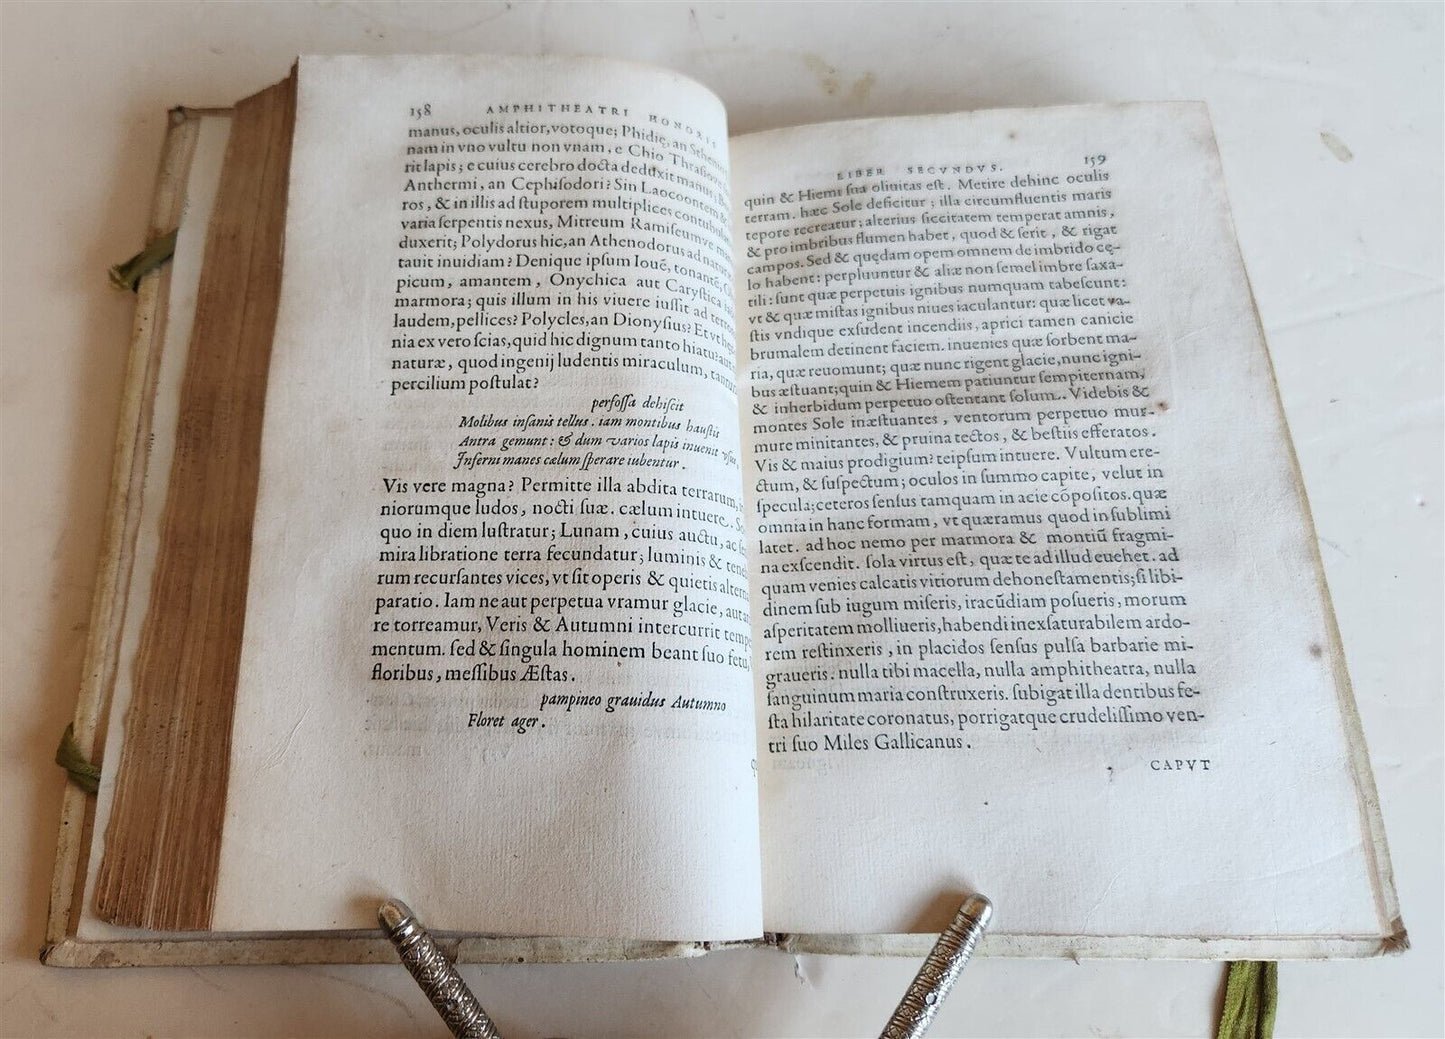 158 AMPHITHEATRI HONORIS
manus, oculis altior, votoque; Phidię, an Sthen
nam in vno vultu non vnam, e Chio Thrasiou
rit lapis; e cuius cerebro docta deduxit manus; B
Anthermi, an Cephisodori? Sin Laocoontem &
ros, & in illis ad stuporem multiplices contubul
varia serpentis nexus, Mitreum Ramiscumve man
duxerit; Polydorus hic, an Athenodorus ad natur
tauit inuidiam? Denique ipsum Iouē, tonantē, O
picum, amantem, Onychica aut Carystica
marmora; quis illum in his viuere iussit ad terro
laudem, pellices? Polycles, an Dionysius? Et vt
nia ex vero scias, quid hic dignum tanto hiatu? aut
naturæ, quod ingenij ludentis miraculum, tantum
percilium postulat?
perfossa dehiscit
Molibus insanis tellus. iam montibus haustis
Antra gemunt: & dum varios lapis inuenit vsus,
Inferni manes cælum sperare iubentur.
Vis vere magna? Permitte illa abdita terrarum,
niorumque ludos, nocti suæ. cælum intuere. So
quo in diem lustratur; Lunam, cuius auctu, ac
mira libratione terra fecundatur; luminis & teneb
rum recursantes vices, vt sit operis & quietis altern
paratio. Iam ne aut perpetua vramur glacie, aut
re torreamur, Veris & Autumni intercurrit tempe
mentum. sed & singula hominem beant suo fetu,
floribus, messibus Æstas.
pampineo grauidus Autumno
Floret ager.
LIBER SECVNDVS. 159
quin & Hiemi sua oliuitas est. Metire dehinc oculis
terram. hæc Sole deficitur; illa circumfluentis maris
tepore recreatur; alterius siccitatem temperat amnis,
& pro imbribus flumen habet, quod & serit, & rigat
campos. Sed & quędam opem omnem de imbrido cę-
lo habent: perpluuntur & aliæ non semel imbre saxa-
tili: sunt quæ perpetuis ignibus numquam tabescunt:
vt & quæ mistas ignibus niues iaculantur: quæ licet va-
stis vndique exsudent incendiis, aprici tamen canicie
brumalem detinent faciem. inuenies quæ sorbent ma-
ria, quæ reuomunt; quæ nunc rigent glacie, nunc igni-
bus æstuant; quin & Hiemem patiuntur sempiternam,
& inherbidum perpetuo ostentant solum. Videbis &
montes Sole inæstuantes, ventorum perpetuo mur-
mure minitantes, & pruina tectos, & bestiis efferatos.
Vis & maius prodigium? teipsum intuere. Vultum ere-
ctum, & suspectum; oculos in summo capite, velut in
specula; ceteros sensus tamquam in acie cōpositos. quæ
omnia in hanc formam, vt quæramus quod in sublimi
latet. ad hoc nemo per marmora & montiū fragmi-
na exscendit. sola virtus est, quæ te ad illud euehet. ad
quam venies calcatis vitiorum dehonestamentis; si libi-
dinem sub iugum miseris, iracūdiam posueris, morum
asperitatem molliueris, habendi inexsaturabilem ardo-
rem restinxeris, in placidos sensus pulsa barbarie mi-
graueris. nulla tibi macella, nulla amphitheatra, nulla
sanguinum maria construxeris. subigat illa dentibus fe-
sta hilaritate coronatus, porrigatque crudelissimo ven-
tri suo Miles Gallicanus.
CAPVT